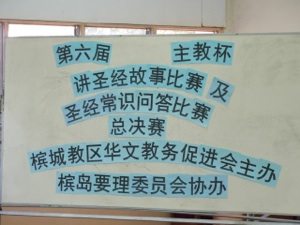 第六届 主教杯
讲圣经故事比赛 及
圣经常识问答比赛
总决赛
槟城教区华文教务促进会主办
槟岛要理委员会协办